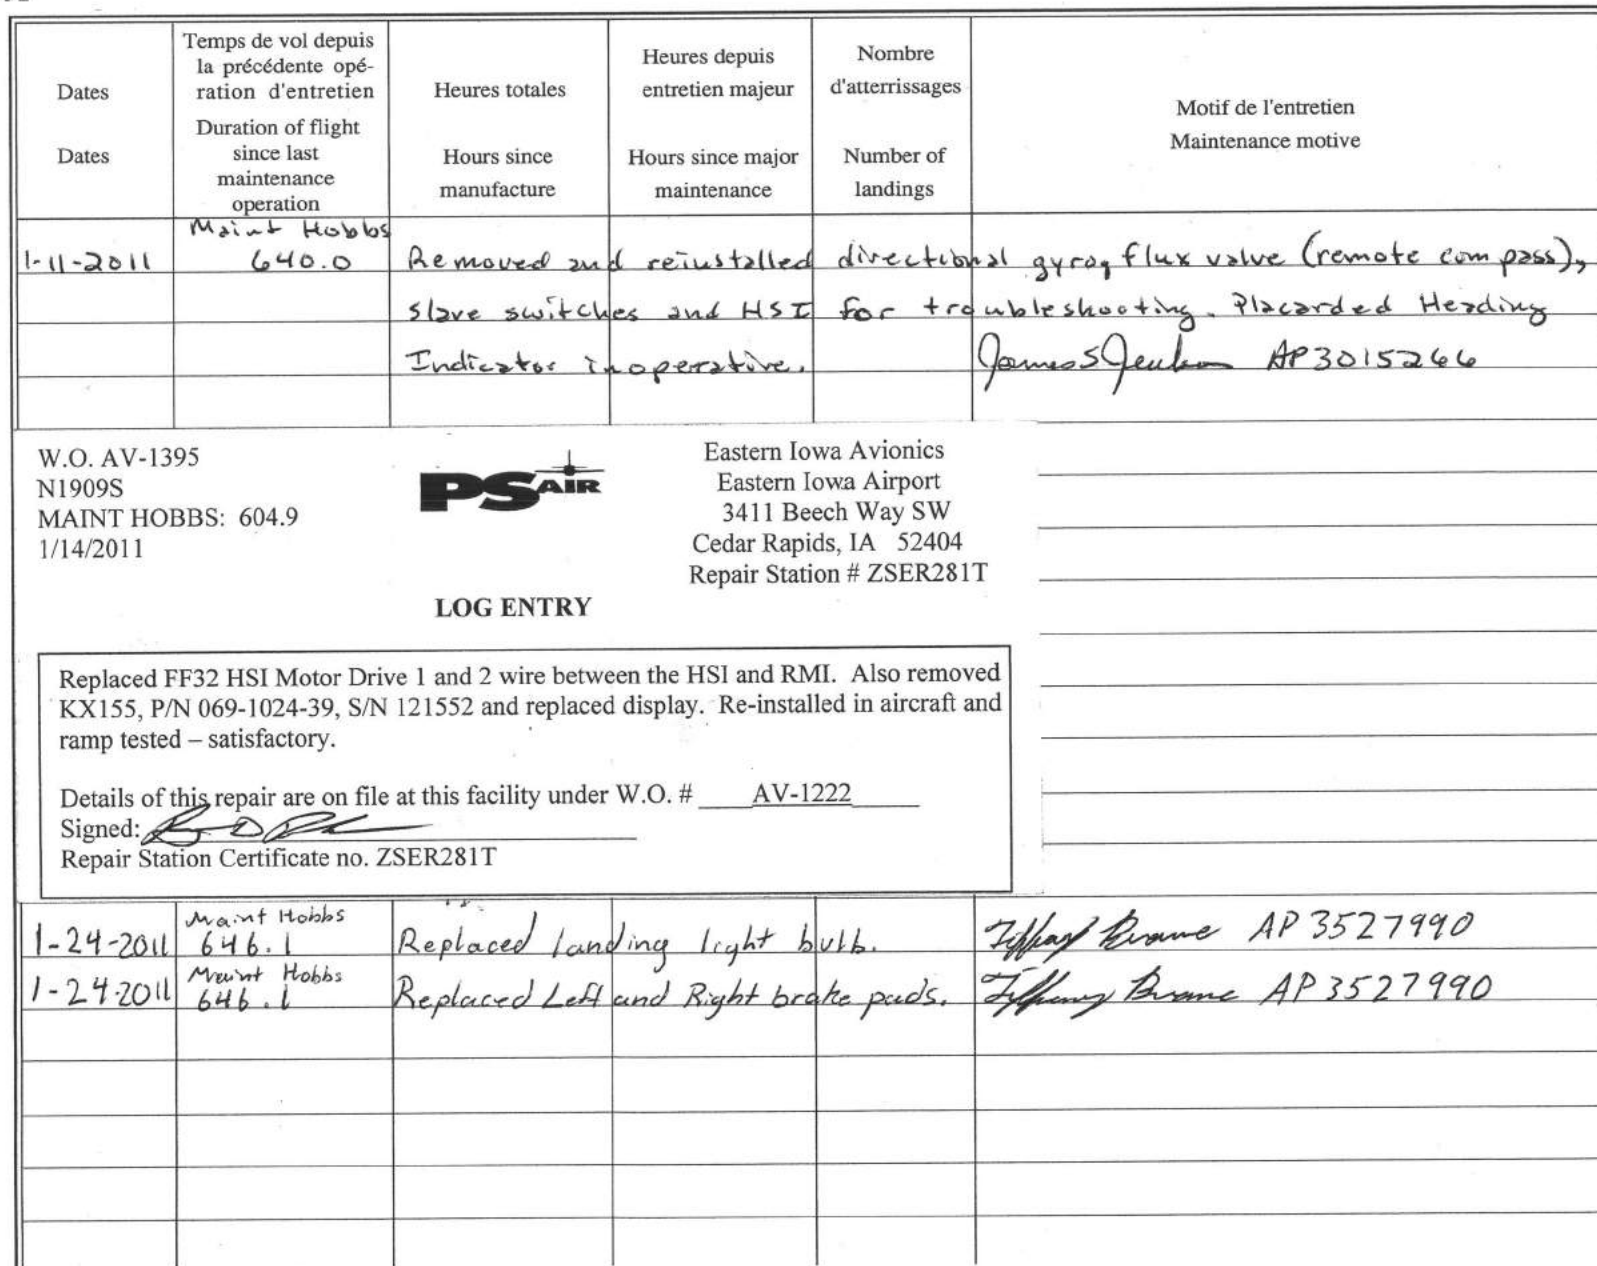 Dates
Dates
Temps de vol depuis
la précédente opé-
ration d'entretien
Duration of flight
since last
maintenance
operation
Heures totales
Hours since
manufacture
Heures depuis
entretien majeur
Hours since major
maintenance
Nombre
d'atterrissages
Number of
landings
Motif de l'entretien
Maintenance motive
Maint Hobbs
1-11-2011 640.0 Removed and reinstalled directional gyro, flux valve (remote compass),
slave switches and HSI for troubleshooting. Placarded Heading
Indicator inoperative. James S AP3015266
W.O. AV-1395
N1909S
MAINT HOBBS: 604.9
1/14/2011
PS AIR
Eastern Iowa Avionics
Eastern Iowa Airport
3411 Beech Way SW
Cedar Rapids, IA 52404
Repair Station # ZSER281T
LOG ENTRY
Replaced FF32 HSI Motor Drive 1 and 2 wire between the HSI and RMI. Also removed
KX155, P/N 069-1024-39, S/N 121552 and replaced display. Re-installed in aircraft and
ramp tested – satisfactory.
Details of this repair are on file at this facility under W.O. # AV-1222
Signed:
Repair Station Certificate no. ZSER281T
Maint Hobbs
1-24-2011 646.1 Replaced landing light bulb. Tiffany AP 3527990
Maint Hobbs
1-24-2011 646.1 Replaced Left and Right brake pads. Tiffany AP 3527990